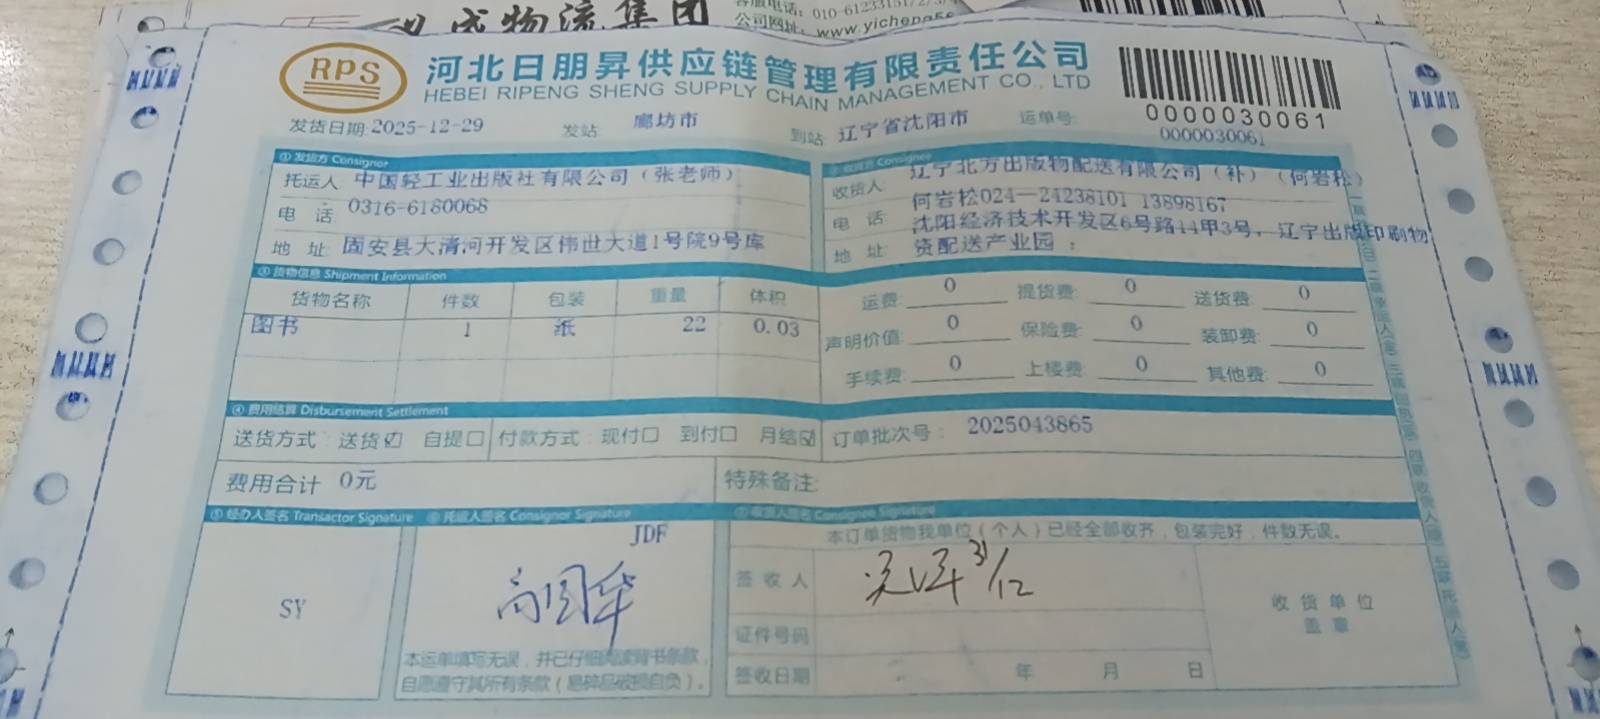 成物流集团
客服电话：010-61233151/2/3/
公司网址：www.yicheng56
RPS
河北日朋昇供应链管理有限责任公司
HEBEI RIPENG SHENG SUPPLY CHAIN MANAGEMENT CO., LTD
0000030061
发货日期: 2025-12-29 发站: 廊坊市 到站: 辽宁省沈阳市 运单号: 0000030061
① 发货方 Consignor
托运人 中国轻工业出版社有限公司（张老师）
电 话: 0316-6180068
地 址: 固安县大清河开发区伟世大道1号院9号库
② 收货方 Consignee
收货人 辽宁北方出版物配送有限公司（补）（何岩松）
电 话: 何岩松024—24238101 13898167
地 址: 沈阳经济技术开发区6号路14甲3号，辽宁出版印刷物
资配送产业园；
③ 货物信息 Shipment Information
货物名称 件数 包装 重量 体积
图书 1 纸 22 0.03
运费: 0 提货费: 0 送货费: 0
声明价值: 0 保险费: 0 装卸费: 0
手续费: 0 上楼费: 0 其他费: 0
④ 费用结算 Disbursement Settlement
送货方式: 送货☑ 自提☐ 付款方式: 现付☐ 到付☐ 月结☑ 订单批次号: 2025043865
费用合计 0元 特殊备注:
⑤ 经办人签名 Transactor Signature ⑥ 托运人签名 Consignor Signature ⑦ 收货人签名 Consignee Signature
SY
JDF
本运单填写无误，并已仔细阅读背书条款，
自愿遵守其所有条款（易碎品破损自负）。
本订单货物我单位（个人）已经全部收齐，包装完好，件数无误。
签收人 31/12
证件号码
签收日期 年 月 日
收货单位
盖章